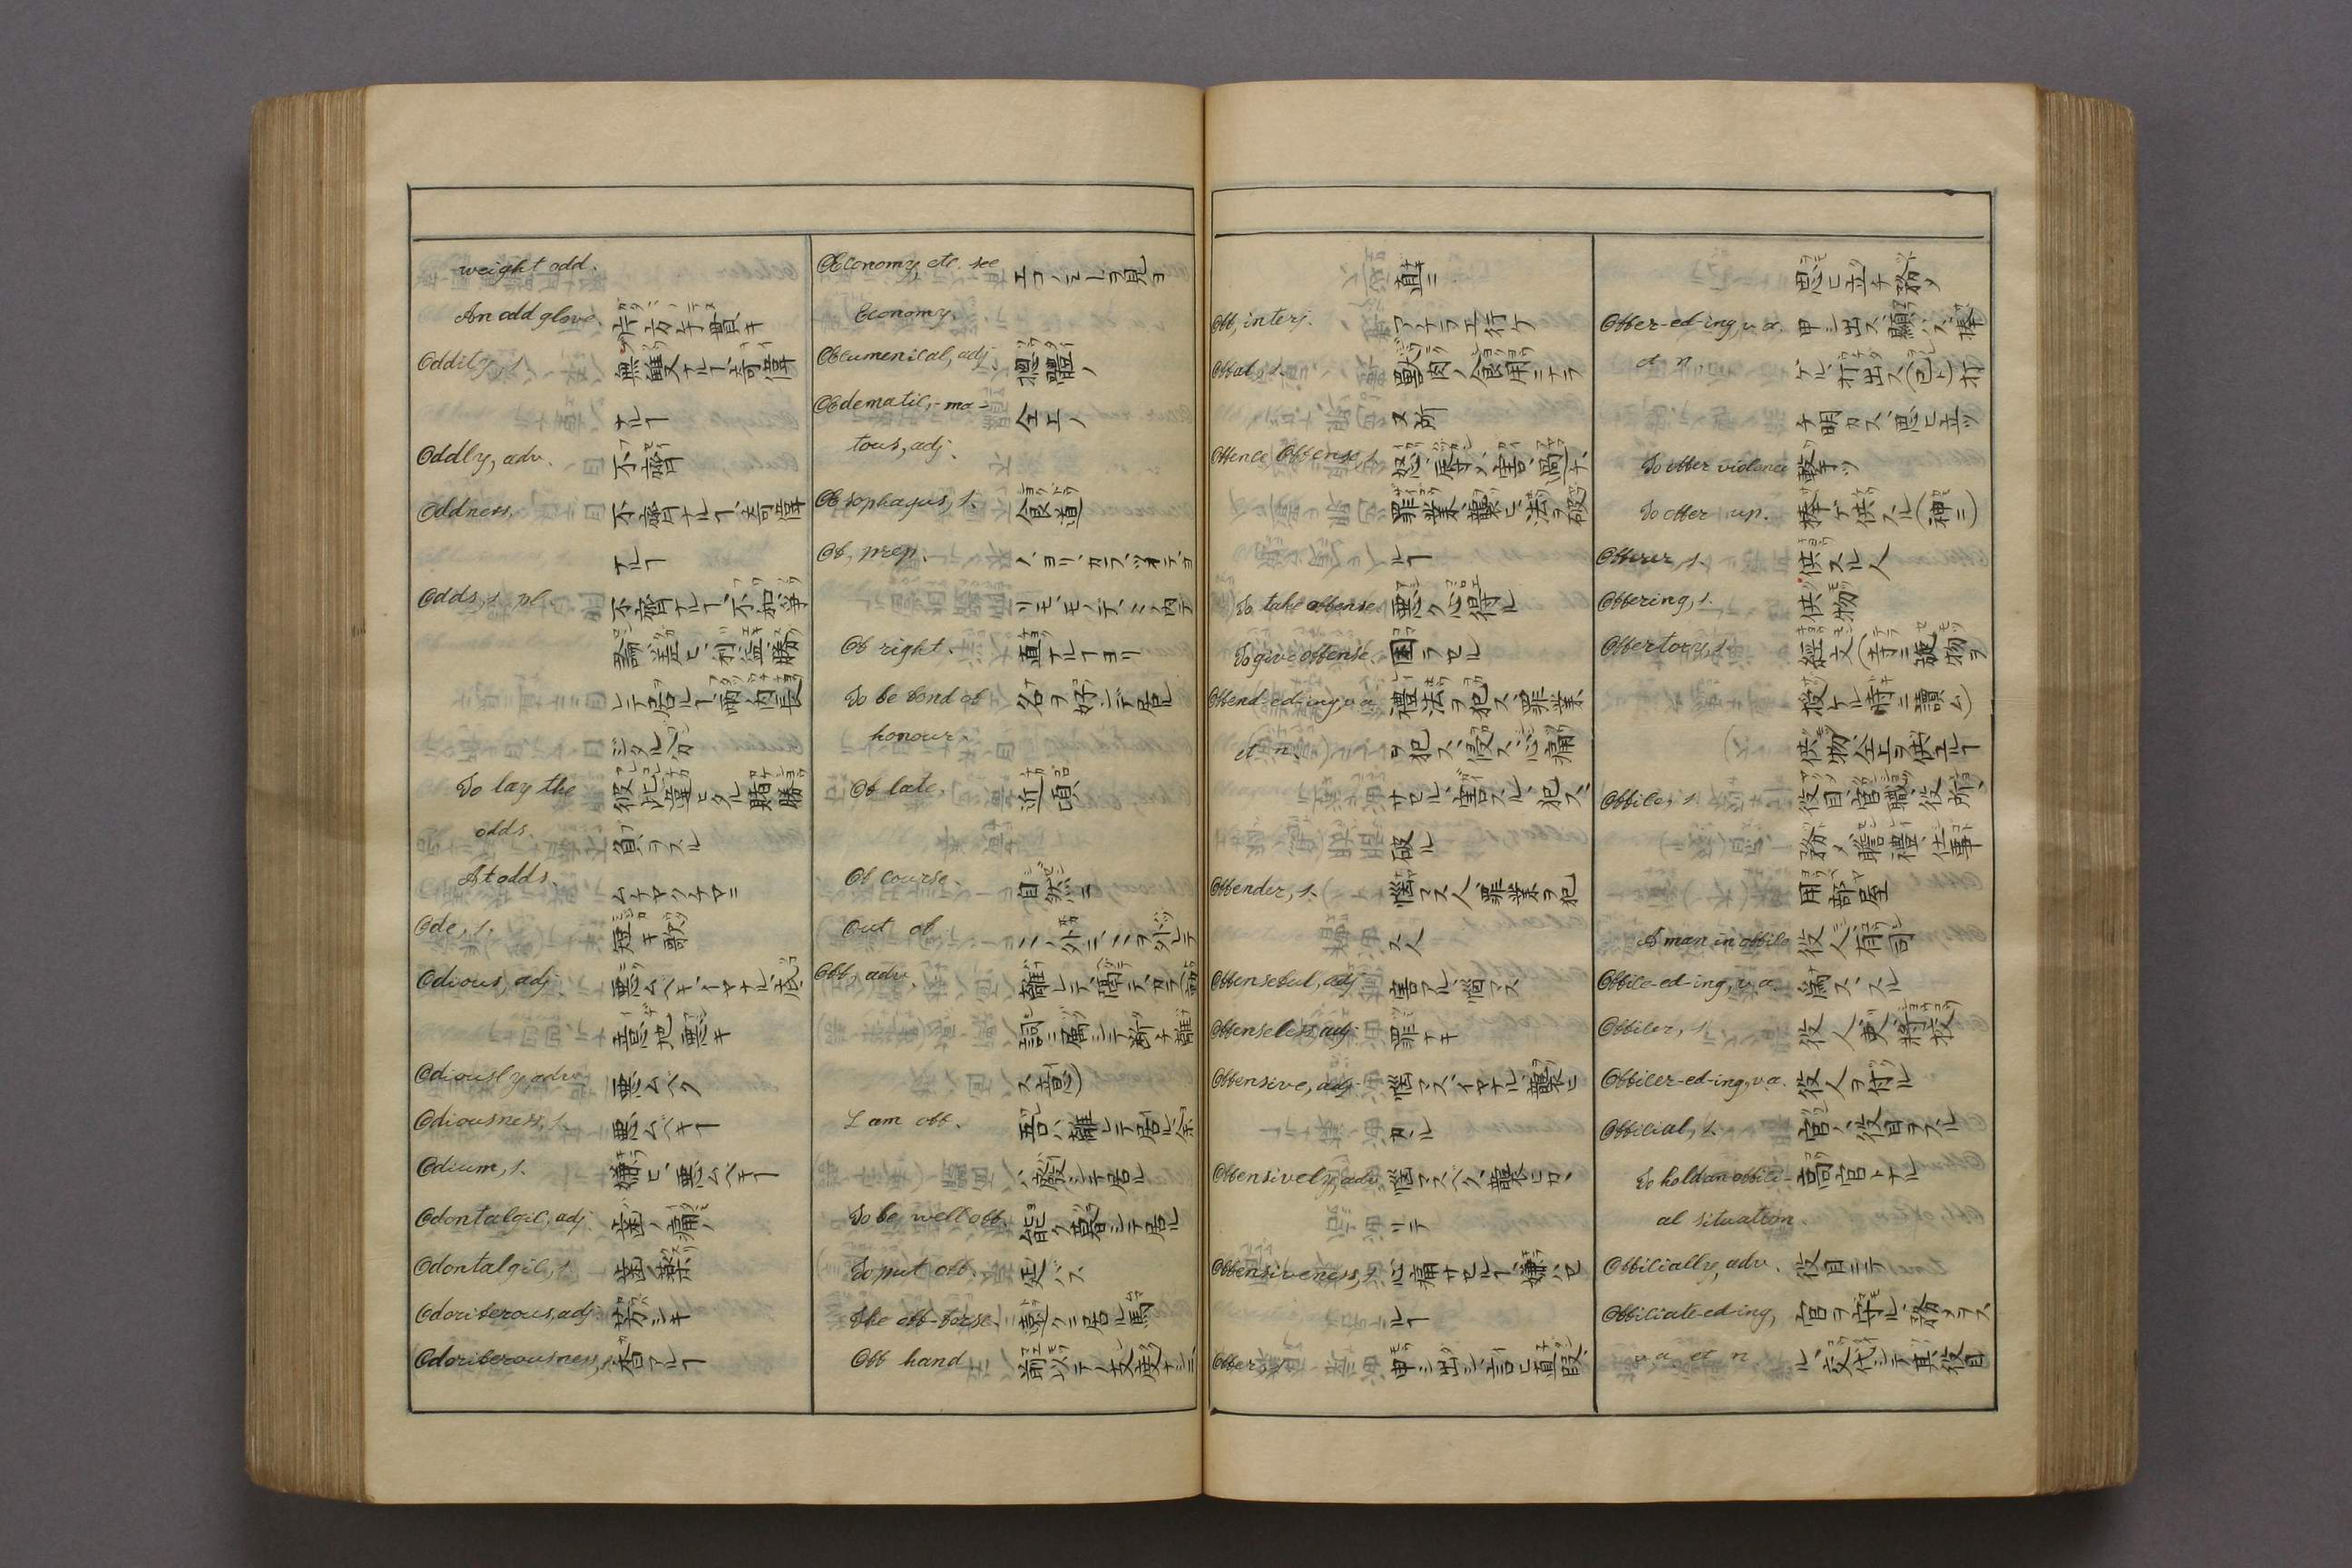 weight odd.
An odd glove. 片方ノ手貫キ
Oddity, s. 無雙ナルヿ、奇偉
ナルヿ
Oddly, adv. 不齊
Oddness. 不齊ナルヿ、奇偉
ナルヿ
Odds, s. pl. 不齊ナルヿ、不和、爭
論、差ヒ、利益、勝
レテ居ルヿ、兩ノ内長
ジタル方
To lay the
odds. 負ヲスル
At odds. ムチヤクチヤニ
Ode, s. 短キ歌
Odious, adj. 悪ムベキ、イヤナル、
意地悪キ
Odiously, adv. 悪ムベク
Odiousness, s. 悪ムベキヿ
Odium, s. 嫌ヒ、悪ムベキヿ
Odontalgic, adj. 歯ノ痛ノ
Odontalgic, s. 歯ノ藥
Odoriferous, adj. 芳シキ
Odoriferousness, s. 香アルヿ
Œconomy, etc. see エコノミーヲ見ヨ
Economy.
Œcumenical, adj. 揔體ノ
Œdematic,-ma- 仝上ノ
tous, adj.
Œsophagus, s. 食道
Of, prep. ノ、ヨリ、カラ、ツイテ、ヨ
リモ、モノデ、ミノ内デ
Of right. 直ナルヿヨリ
To be fond of 名ヲ好ンデ居ル
honour.
Of late. 近頃
Of course. 自然ニ
Out of ミノ外ニ、ミヲ外レテ
Off, adv. 離レテ、隔テ、カラ
詞ニ属シテ断チ離
ス意)
I am off. 吾ハ離レテ居ル、余
ハ疲シテ居ル
To be well off. 能ク暮シテ居ル
To put off. 延バス
The off-horse. 遠クニ居ル馬
Off hand 前以テノ支度ナシニ、
直ニ
Off, interj. アチラエ行ケ
Offal, s. 獸肉ノ食用ニナラ
ヌ所
Offence Offense, s. 怒、辱メ、害、過チ、
罪業、襲ヒ、法ヲ破
ルヿ
To take offense. 悪ク心得ル
To give offense. 困ラセル
Offend-ed-ing, v. a. 禮法ヲ犯ス、罪業
et n. ヲ犯ス、侵ス、心痛
サセル、害スル、犯ス、
破ル
Offender, s. 惱マス人、罪業ヲ犯
ス人
Offenseful, adj. 害アル、惱マス
Offenseless, adj. 罪ナキ
Offensive, adj. 惱マス、イヤナル、襲ヒ
カル
Offensively, adv. 惱マスベク、襲ヒカヽ
リテ
Offensiveness, s. 心痛サセルヿ、嫌ハセ
ルヿ
Offer, s. 申シ出シ、言ヒ直段、
思ヒ立チ、務メ
Offer-ed-ing, v. a. 申シ出ス、顯ハス、捧
et n. ゲル、打出ス(己ト)打
チ明カス、思ヒ立ツ
To offer violence 擊チツ
To offer up. 捧ゲ供スル(神ニ)
Offerer, s. 供スル人
Offering, s. 供物
Offertory, s. 經文(寺ニ施物ヲ
授ケル時ニ讀ム)
供物、仝上ヲ供エルヿ
Office, s. 役目、官職、役所、
務メ、膽禮、仕事
用部屋
A man in office 役人、有司
Office-ed-ing, v. a. 爲ス、スル
Officer, s. 役人、吏、將校
Officer-ed-ing, v. a. 役人ヲ付ル
Official, s. 官ノ役目ヲスル
To hold an offici- 高官トナル
al situation.
Officially, adv. 役目ニテ
Officiate-ed-ing, 官ヲ守ル、務メヲス
v. a. et n. ル、交代シテ其役目